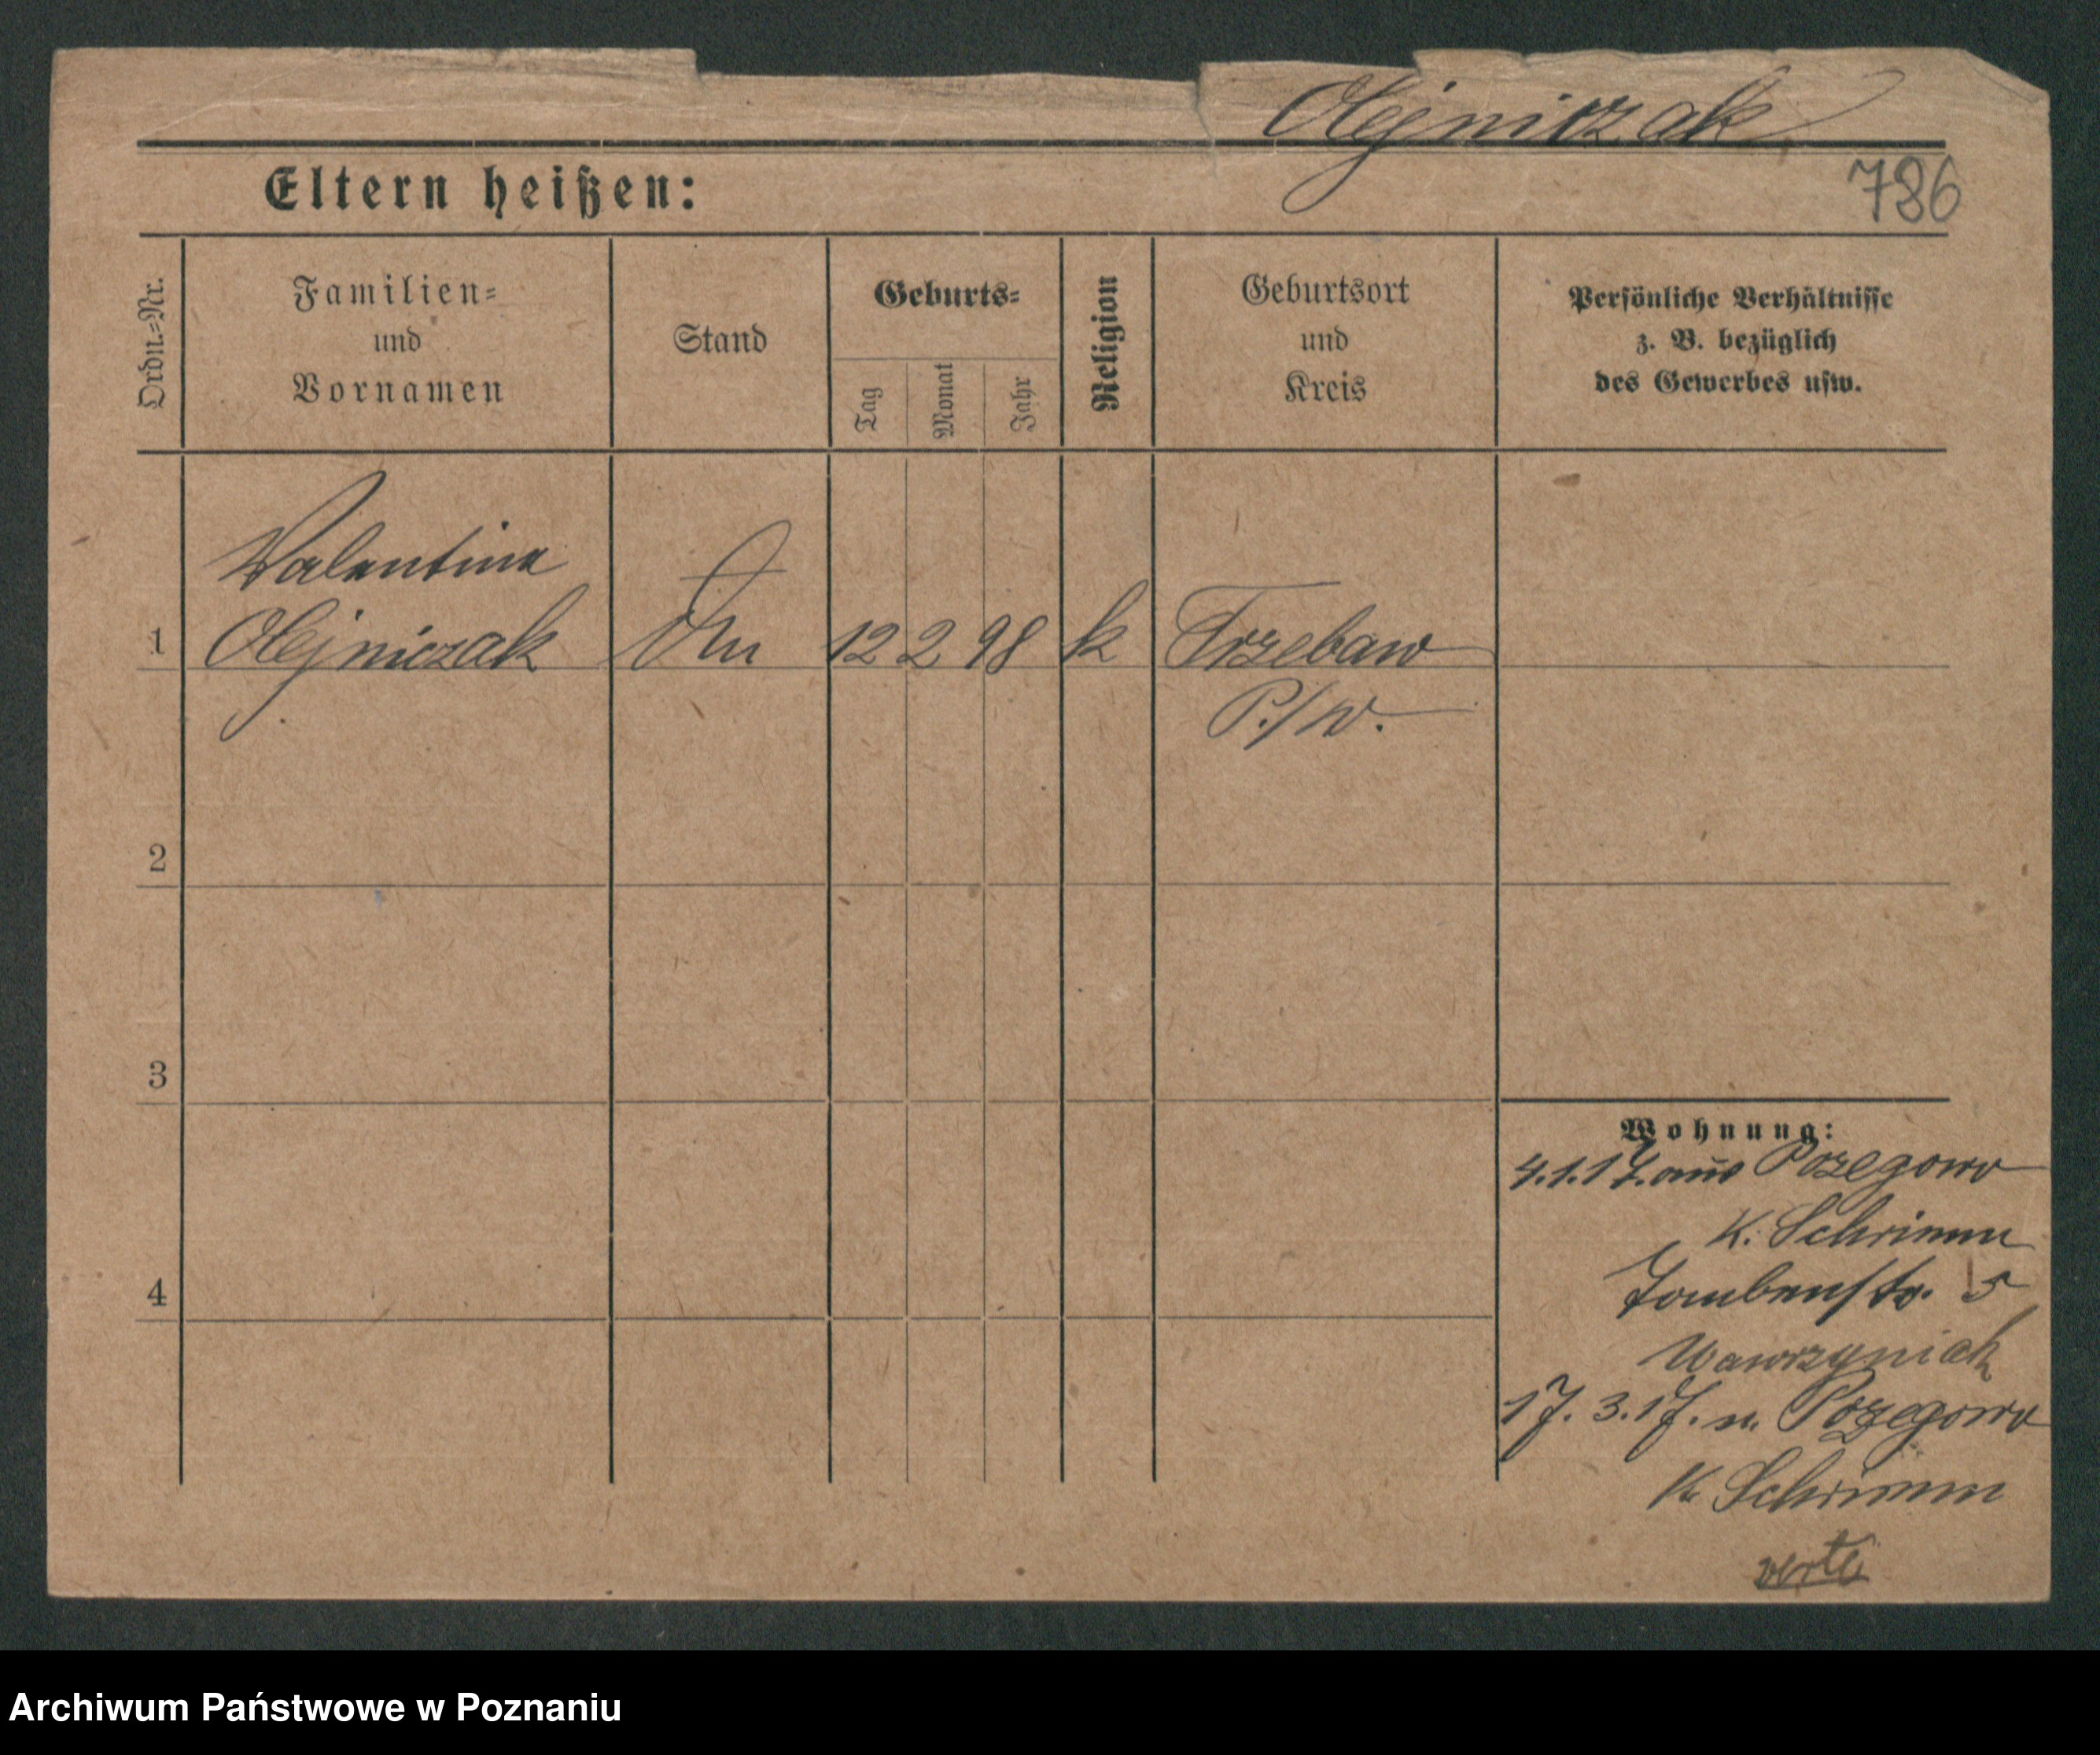 Olejniczak
786
Eltern heißen:
Ordn.=Nr.
Familien=
und
Vornamen
Stand
Geburts=
Tag
Monat
Jahr
Religion
Geburtsort
und
Kreis
Persönliche Verhältnisse
z. B. bezüglich
des Gewerbes usw.
Valentina
1 Olejniczak 12 2 98 k Trzebaw
P./W.
2
3
4
Wohnung:
4.1.17. aus Pozegowo
K. Schrimm
Taubenstr. 5
Wawrzyniak
17. 3. 17. n. Pozegowo
K. Schrimm
verte
Archiwum Państwowe w Poznaniu